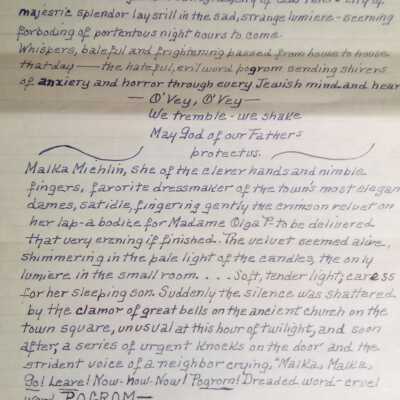 majestic splendor lay still in the sad, strange lumiere - seeming
forboding of portentous night hours to come.
Whispers, baleful and frightening passed from house to house
that day — the hateful, evil word pogrom sending shivers
of anxiery and horror through every Jewish mind and hear
— O'Vey, O'Vey —
We tremble - we shake
May God of our Fathers
protect us.
Malka Michlin, she of the clever hands and nimble
fingers, favorite dressmaker of the town's most elegan
dames, sat idle, fingering gently the crimson velvet on
her lap - a bodice for Madame Olga P- to be delivered
that very evening if finished. The velvet seemed alive,
shimmering in the pale light of the candles, the only
lumiere in the small room. . . . Soft, tender light; caress
for her sleeping son. Suddenly the silence was shattered
by the clamor of great bells on the ancient church on the
town square, unusual at this hour of twilight, and soon
after, a series of urgent knocks on the door and the
strident voice of a neighbor crying, "Malka, Malka,
Go! Leave! Now - now - Now! Pogrom! Dreaded word - cruel
word POGROM —